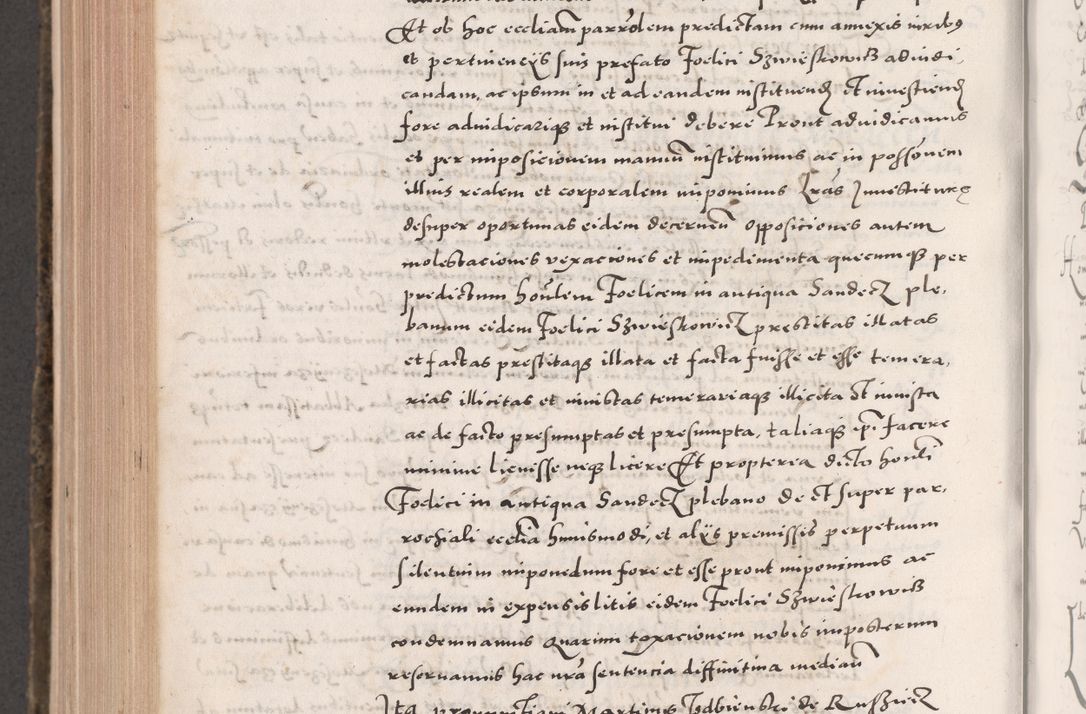 Et ob hoc eccliam parrolem predictam cum annexis iuribus
et pertinencijs suis prefato Foelici Szwieskowicz adiudi,
candam, ac ipsum in et ad eandem instituend et inuestiend
fore adiudicarique et institui debere Prout adiudicamus
et per imposicionem manuu instituimus ac in possonem
illius realem et corporalem imponimus Lras Inuestiture
desuper oportunas eidem decernen Opposiciones autem
molestaciones vexaciones et impedimenta quecumque per
predictum honlem Foelicem in antiqua Sandecz ple,
banum eidem Foelici Szwieskowicz prestitas illatas
et factas prestitaque illata et facta fuisse et esse temera,
rias illicitas et iniustas temerariaque illicita et iniusta
ac de facto presumptas et presumpta, taliaque ipi facere
minime licuisse neque licere Et propterea dicto honli
Foelici in antiqua Sandecz plebano de et super par,
rochiali ecclia huiusmodi, et alijs premissis perpetuum
silentium imponedum fore et esse prout imponimus ac
eundem in expensis litis eidem Foelici Szwieskowicz
condemnamus Quarum taxacionem nobis imposterum
reseruamus hac nra sentencia diffinitiua median
Ita pronunctiaui Martinus Izdbienski de Russziecz